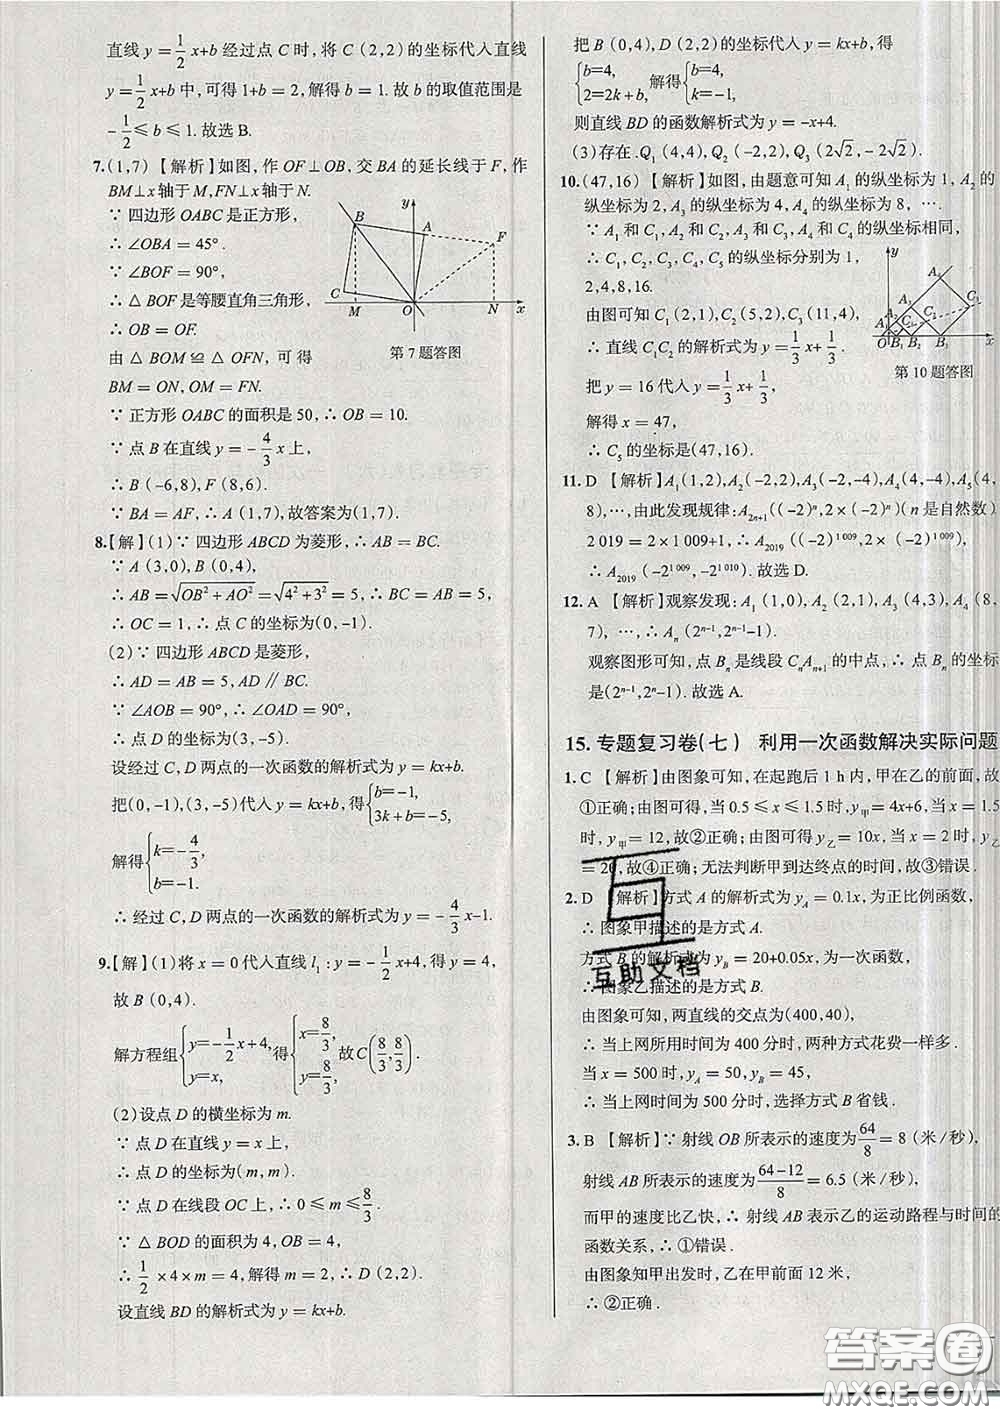 直线 y = 1/2 x+b 经过点 C 时,将 C (2,2)的坐标代入直线
y = 1/2 x+b 中,可得 1+b = 2,解得 b = 1.故 b 的取值范围是
-1/2 ≤ b ≤ 1.故选 B.
7.(1,7) 【解析】如图,作 OF⊥OB,交 BA 的延长线于 F,作
BM⊥x 轴于 M,FN⊥x 轴于 N.
∵ 四边形 OABC 是正方形,
∴ ∠OBA = 45°.
∵ ∠BOF = 90°,
∴ △ BOF 是等腰直角三角形,
∴ OB = OF.
由 △ BOM ≌ △ OFN, 可 得
BM = ON,OM = FN.
B y A F C M O N x
第 7 题答图
∵ 正方形 OABC 的面积是 50,∴ OB = 10.
∵ 点 B 在直线 y = -4/3 x 上,
∴ B (-6,8),F (8,6).
∵ BA = AF,∴ A (1,7),故答案为(1,7).
8.【解】(1)∵ 四边形 ABCD 为菱形,∴ AB = BC.
∵ A (3,0),B (0,4),
∴ AB = √(OB²+AO²) = √(4²+3²) = 5,∴ BC = AB = 5,
∴ OC = 1,∴ 点 C 的坐标为(0,-1).
(2)∵ 四边形 ABCD 是菱形,
∴ AD = AB = 5,AD ∥ BC.
∵ ∠AOB = 90°,∴ ∠OAD = 90°,
∴ D (3,-5).
设经过 C,D 两点的一次函数的解析式为 y = kx+b.
把(0,-1),(3,-5)代入 y = kx+b,得 { b=-1, 3k+b=-5,
解得 { k=-4/3, b=-1.
∴ 经过 C,D 两点的一次函数的解析式为 y = -4/3 x-1.
9.【解】(1)将 x = 0 代入直线 l₁ : y = -1/2 x+4,得 y = 4,
故 B (0,4).
解方程组 { y=-1/2 x+4, y=x, 得 { x=8/3, y=8/3, 故 C(8/3,8/3).
(2)设点 D 的横坐标为 m.
∵ 点 D 在直线 y = x 上,
∴ 点 D 的坐标为(m,m).
∵ 点 D 在线段 OC 上,∴ 0 ≤ m ≤ 8/3.
∵ △ BOD 的面积为 4,OB = 4,
∴ 1/2 ×4×m = 4,解得 m = 2,∴ D (2,2).
设直线 BD 的解析式为 y = kx+b.
把 B (0,4),D (2,2)的坐标代入 y = kx+b,得
{ b=4, 2=2k+b, 解得 { b=4, k=-1,
则直线 BD 的函数解析式为 y = -x+4.
(3)存在.Q₁ (4,4),Q₂(-2,2),Q₃(2√2,-2√2).
10.(47,16) 【解析】如图,由题意可知 A₁ 的纵坐标为 1,A₂ 的
纵坐标为 2,A₃ 的纵坐标为 4,A₄ 的纵坐标为 8,….
∵ A₁ 和 C₁,A₂ 和 C₂,A₃ 和 C₃,A₄ 和 C₄ 的纵坐标相同,
∴ C₁,C₂,C₃,C₄,C₅ 的纵坐标分别为 1,
2,4,8,16.
由图可知 C₁ (2,1),C₂ (5,2),C₃ (11,4),
∴ 直线 C₁C₂ 的解析式为 y = 1/3 x+1/3.
把 y = 16 代入 y = 1/3 x+1/3,
解得 x = 47,
∴ C₅ 的坐标是(47,16).
y A₃ A₂ C₃ A₁ C₂ C₁ O B₁ B₂ B₃ x
第 10 题答图
11. D 【解析】A₁ (1,2),A₂(-2,2),A₃(-2,-4),A₄(4,-4),A₅(4,
8),…,由此发现规律:A₂ₙ₊₁((-2)ⁿ,2×(-2)ⁿ)(n 是自然数)
2 019 = 2×1 009+1,∴ A₂₀₁₉ ((-2)^1 009,2×(-2)^1 009),
∴ A₂₀₁₉ (-2^1 009,-2^1 010).故选 D.
12. A 【解析】观察发现:A₁ (1,0),A₂ (2,1),A₃ (4,3),A₄ (8,
7), …,∴ Aₙ (2ⁿ⁻¹,2ⁿ⁻¹-1).
观察图形可知,点 Bₙ 是线段 CₙAₙ₊₁ 的中点,∴ 点 Bₙ 的坐标
是(2ⁿ⁻¹,2ⁿ-1).故选 A.
15. 专题复习卷(七) 利用一次函数解决实际问题
1. C 【解析】由图象可知,在起跑后 1 h 内,甲在乙的前面,故
①正确;由图象可得,当 0.5 ≤ x ≤ 1.5 时,y甲 = 4x+6,当 x = 1.5
时,y甲 = 12,故②正确;由图象可得 y乙 = 10x,当 x = 2 时,y乙
= 20,故④正确;无法判断甲到达终点的时间,故③错误.
2. D 【解析】方式 A 的解析式为 yA = 0.1x,为正比例函数,
∴ 图象甲描述的是方式 A.
方式 B 的解析式为 yB = 20+0.05x,为一次函数,
∴ 图象乙描述的是方式 B.
由图象可知,两直线的交点为(400,40),
∴ 当上网所用时间为 400 分时,两种方式花费一样多.
当 x = 500 时,yA = 50,yB = 45,
∴ 当上网时间为 500 分时,选择方式 B 省钱.
3. B 【解析】∵ 射线 OB 所表示的速度为 64/8 = 8 (米/秒),
射线 AB 所表示的速度为 (64-12)/8 = 6.5 (米/秒),
而甲的速度比乙快,∴ 射线 AB 表示乙的运动路程与时间的
函数关系,∴ ①错误.
由图象知甲出发时,乙在甲前面 12 米,
∴ ②正确.
互助文档
答案圈
MXQE.COM